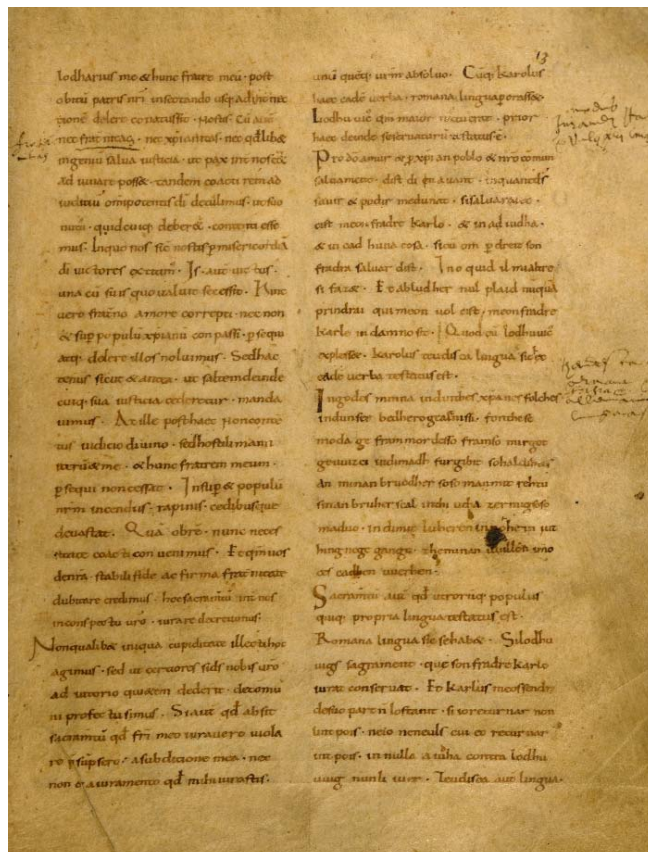 13
lodharius me & hunc fratrē meū · post
obitū patris nr̄i insectando usq; ad internec
cionē delere conatus sit · nostis · Cū aut̄
nec fraternitas · nec xp̄ianitas · nec qd̄lib&
ingeniū salua iusticia · ut pax int̄ nos ēet
ad iuuare poss& · tandem coacti rem ad
iuditiū omnipotentis dī detulimus · ut suo
nutu · quid cuiq; deber& · contenti esse
mus · Inquo nos sic nostis p misericordiā
dī uictores extitim · Is aut̄ uictus ·
una cū suis quo ualuit secessit · Hinc
uero fraterno amore correpti · nec non
& sup populū xp̄ianū conpassi · psequi
atq; delere illos noluimus · Sed hac
tenus sicut & antea · ut saltem deinde
cuiq; sua iusticia cederetur · manda
uimus · At ille post haec non conten
tus iudicio diuino · sed hostili manu
iterū & me · & hunc fratrem meum ·
psequi non cessat · Insup & populū
nr̄m incendiis · rapinis · cedibusque
deuastat · Quā obrē · nunc neces
sitate coacti conuenimus · Et qm̄ uos
de nr̄a · stabili fide ac firma fraternitate
dubitare credimus · hoc sacramtū int̄ nos
in conspectu uro · iurare decreuimus ·
Non qualib& iniqua cupiditate illecti hoc
agimus · sed ut certiores si ds nobis uro
ad iutorio quietem dederit · de comu
ni profectu simus · Si aut̄ qd̄ absit
sacramtū qd̄ frī meo iurauero uiola
re psupsero · a subditione mea · nec
non & a iuramento qd̄ mihi iurastis ·
unū quēq; urm̄ absoluo · Cūq; karolus
haec eadē uerba · romana lingua porasss& ·
Lodhuuic qm̄ maior natu erat · prior
haec deinde se seruaturū testatus ē ·
Pro dō amur & p xp̄ian poblo & nrō comun
saluament · dist di in auant · in quant ds
sauir & podir me dunat · si saluarai eo ·
cist meon fradre karlo · & in ad iudha ·
& in cad huna cosa · si cū om p dreit son
fradra saluar dist · In o quid il mi altre
si faz& · Et ab ludher nul plaid nūquā
prindrai qui meon uol cist · meon fradre
karle in damno sit · Quod cū lodhuuic
explesset · karolus teudisca lingua sic ēc
eadē uerba testatus est ·
In godes minna ind inthes xp̄anes folches
ind unser bedhero gealtnissi · fonthese
moda ge frammordesso framso mirgot
geuuizci indi madh furgibit sohaldihtes
an minan bruodher soso man mit rehtu
sinan bruher scal inthi utha zermigsoso
maduo · indimit luheren in nohein iut
hing nege gango · zhe minan uuillon imo
ce scadhen uuerhen ·
Sacramtū aut̄ qd̄ utrorūq; populus
quiq; propria lingua testatus est ·
Romana lingua sic se hab& · Si lodhu
uigs sagrament · que son fradre karlo
iurat conseruat · Et karlus meossendra
desuo partn̄ lofstanit · si ioreturnar non
lint pois · neio neneuls cui eo returnar
int pois · in nulla aiuha contra lodhu
uuig nunli iuer · Teudisca aut̄ lingua ·